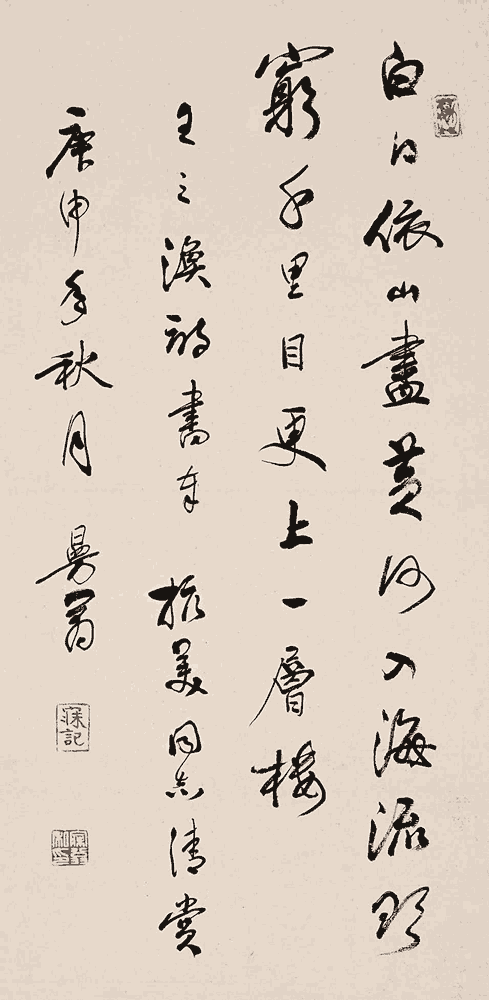 白日依山盡黃河入海流欲
窮千里目更上一層樓
王之渙詩書奉 振美同志清賞
庚申年秋月 曼翁